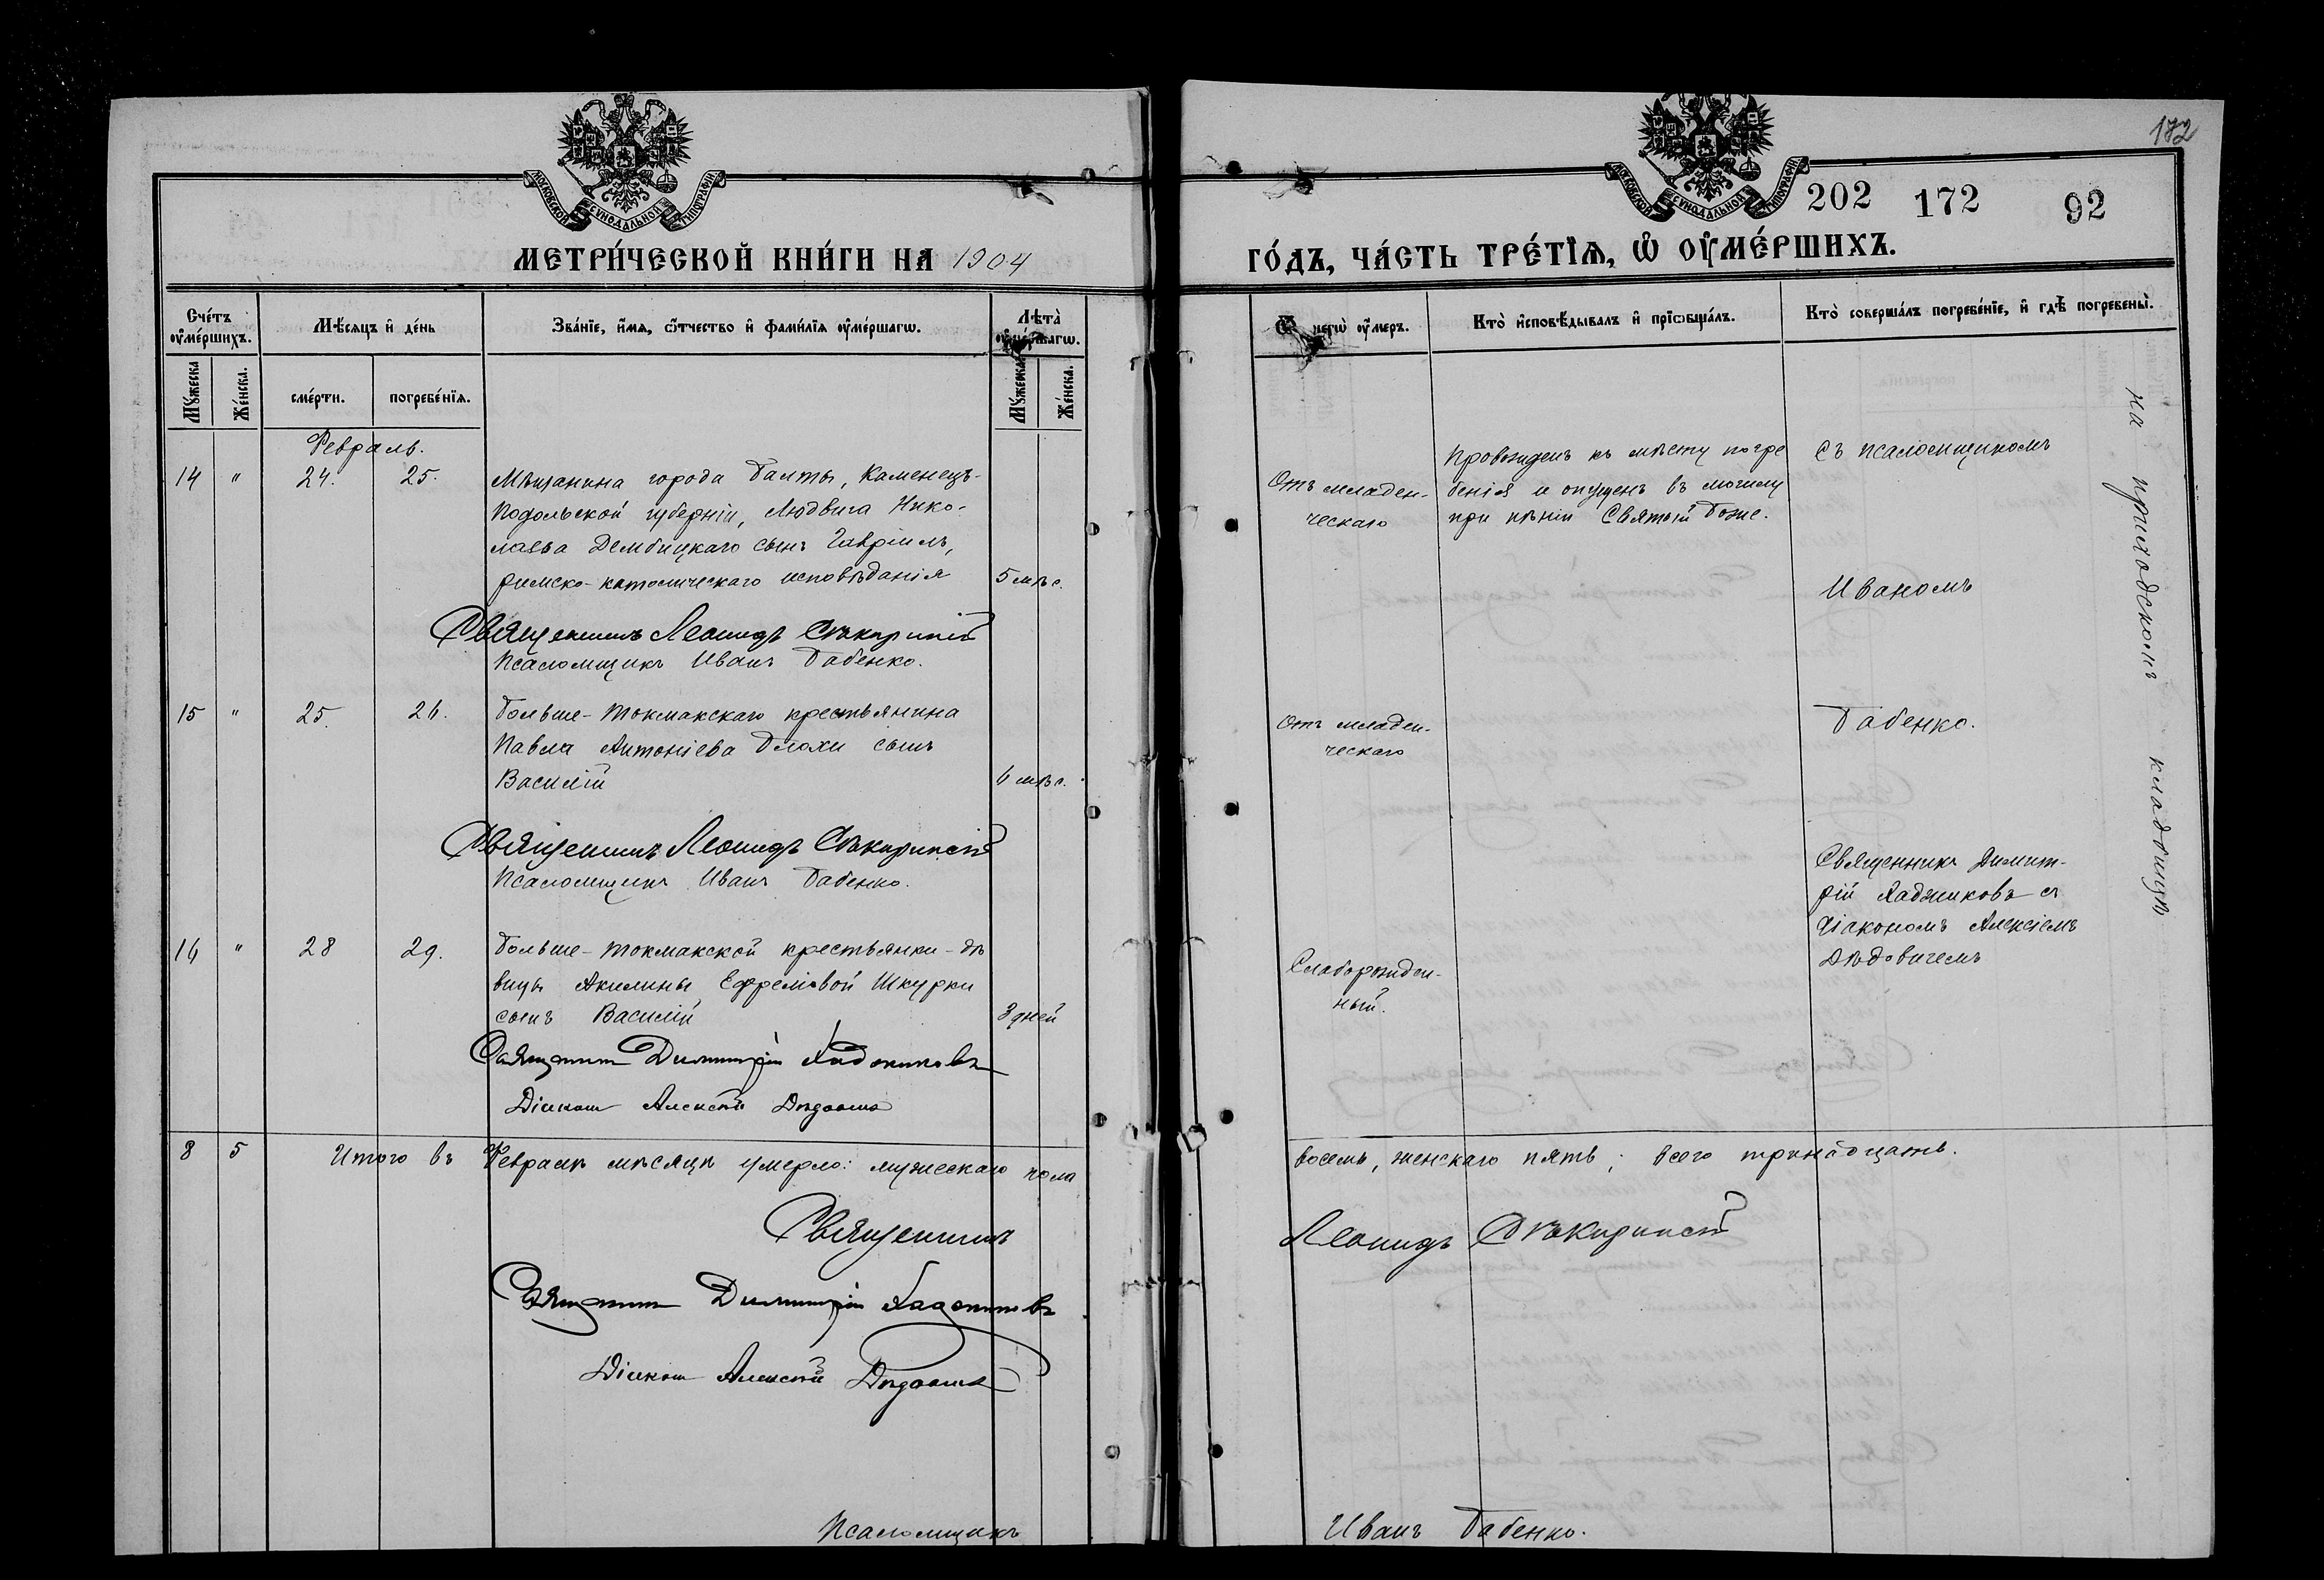 МОСКОВСКОЙ СѴНОДАЛЬНОЙ ТИПОГРАФІИ
МЕТРИ́ЧЕСКОЙ КНИ́ГИ НА 1904
Сче́тъ оу҆ме́ршихъ.
Мѣ́сяцъ и҆ де́нь
Зва́нїе, и҆́мя, ѻ҆́тчество и҆ фами́лїя оу҆ме́ршагѡ.
Лѣта̀ оу҆ме́ршагѡ.
Му́жеска
Же́нска.
сме́рти.
погребе́нїя.
Му́жеска
Же́нска.
Февраль.
14 " 24. 25.
Мѣщанина города Балты, Каменецъ-
Подольской губерніи, Людвига Нико-
лаева Дембицкаго сынъ Гавріилъ,
римско-католическаго исповѣданія 5 мѣс.
Священникъ Леонидъ
Псаломщикъ Иванъ Бабенко.
15 " 25. 26.
Больше-Токмакскаго крестьянина
Павла Антоніева Блохи сынъ
Василій 6 мѣс.
Священникъ Леонидъ
Псаломщикъ Иванъ Бабенко.
16 " 28 29.
Больше-Токмакской крестьянки-дѣ
вицы Акилины Ефремовой Шкурки
сынъ Василій 3 дней
Священникъ Димитрій Хаджиковъ
Діаконъ Алексѣй Дѣдовичъ
8 5 Итого въ Февралѣ мѣсяцѣ умерло: мужескаго пола
Священникъ
Священникъ Димитрій Хаджиковъ
Діаконъ Алексѣй Дѣдовичъ
Псаломщикъ
172
МОСКОВСКОЙ СѴНОДАЛЬНОЙ ТИПОГРАФІИ
202 172 92
ГО́ДЪ, ЧА́СТЬ ТРЕ́ТЇЯ, Ѡ҆ ОУ҆МЕ́РШИХЪ.
Ѿ чегѡ̀ оу҆́меръ.
Кто̀ и҆сповѣ́дывалъ и҆ прїѡбща́лъ.
Кто̀ соверша́лъ погребе́нїе, и҆ гдѣ̀ погребены̀.
Отъ младен-
ческаго
Провожденъ къ мѣсту погре
бенія и опущенъ въ могилу
при пѣніи Святый Боже.
Съ псаломщикомъ
Иваномъ
Бабенко.
Отъ младен-
ческаго
Священникъ Димит-
рій Хаджиковъ съ
діакономъ Алексіемъ
Дѣдовичемъ
Слаборожден-
ный.
на приходскомъ кладбищѣ
восемь, женскаго пять; всего тринадцать.
Леонидъ
Иванъ Бабенко.